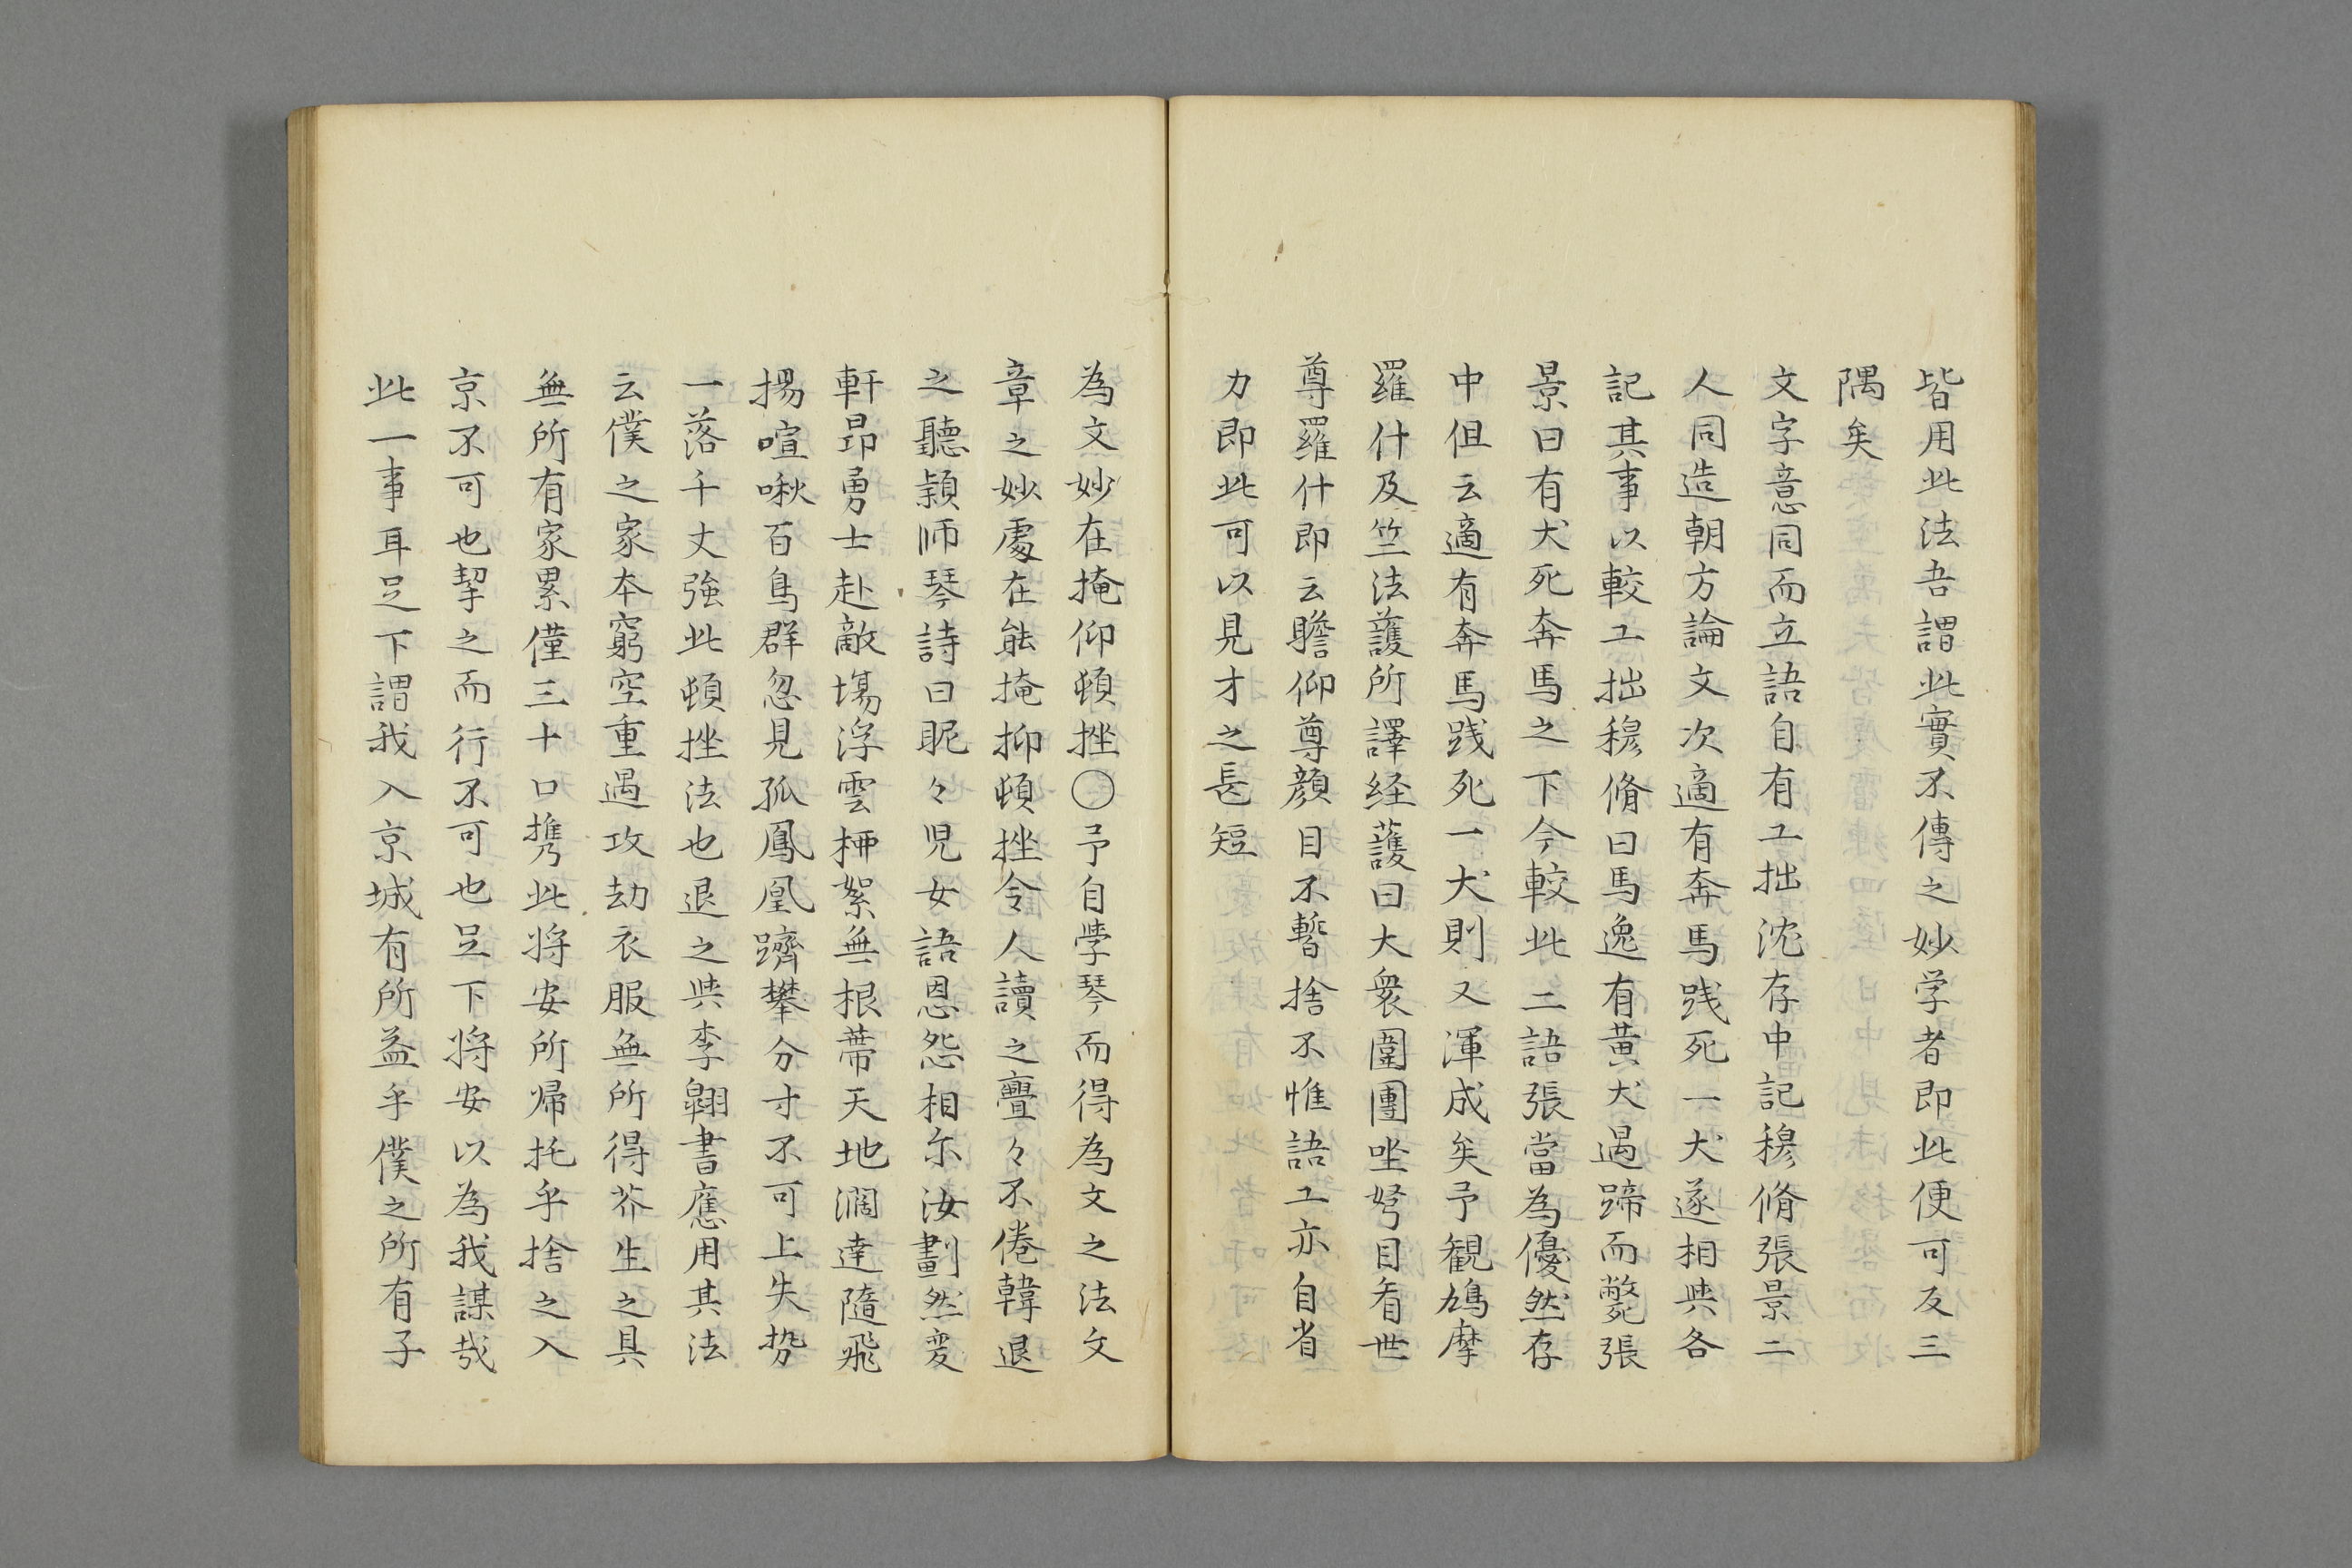 皆用此法吾謂此實不傳之妙学者即此便可反三
隅矣
文字意同而立語自有工拙沈存中記穆脩張景二
人同造朝方論文次適有奔馬践死一犬遂相與各
記其事以較工拙穆脩曰馬逸有黄犬遇蹄而斃張
景曰有犬死奔馬之下今較此二語張當為優然存
中但云適有奔馬践死一犬則又渾成矣予観鳩摩
羅什及竺法護所譯経護曰大衆圍團坐努目看世
尊羅什即云瞻仰尊顔目不暫捨不惟語工亦自省
力即此可以見才之長短
為文妙在掩仰頓挫〇予自學琴而得為文之法文
章之妙處在能掩抑頓挫令人讀之亹々不倦韓退
之聽頴师琴詩曰眤々児女語恩怨相尓汝劃然変
軒昂勇士赴敵塲浮雲栁絮無根蔕天地濶逺隨飛
揚喧啾百鳥群忽見孤鳳凰躋攀分寸不可上失勢
一落千丈強此頓挫法也退之與李翺書應用其法
云僕之家本窮空重遇攻劫衣服無所得养生之具
無所有家累僅三十口携此将安所帰托乎捨之入
京不可也挈之而行不可也足下将安以為我謀哉
此一事耳足下謂我入京城有所益乎僕之所有子